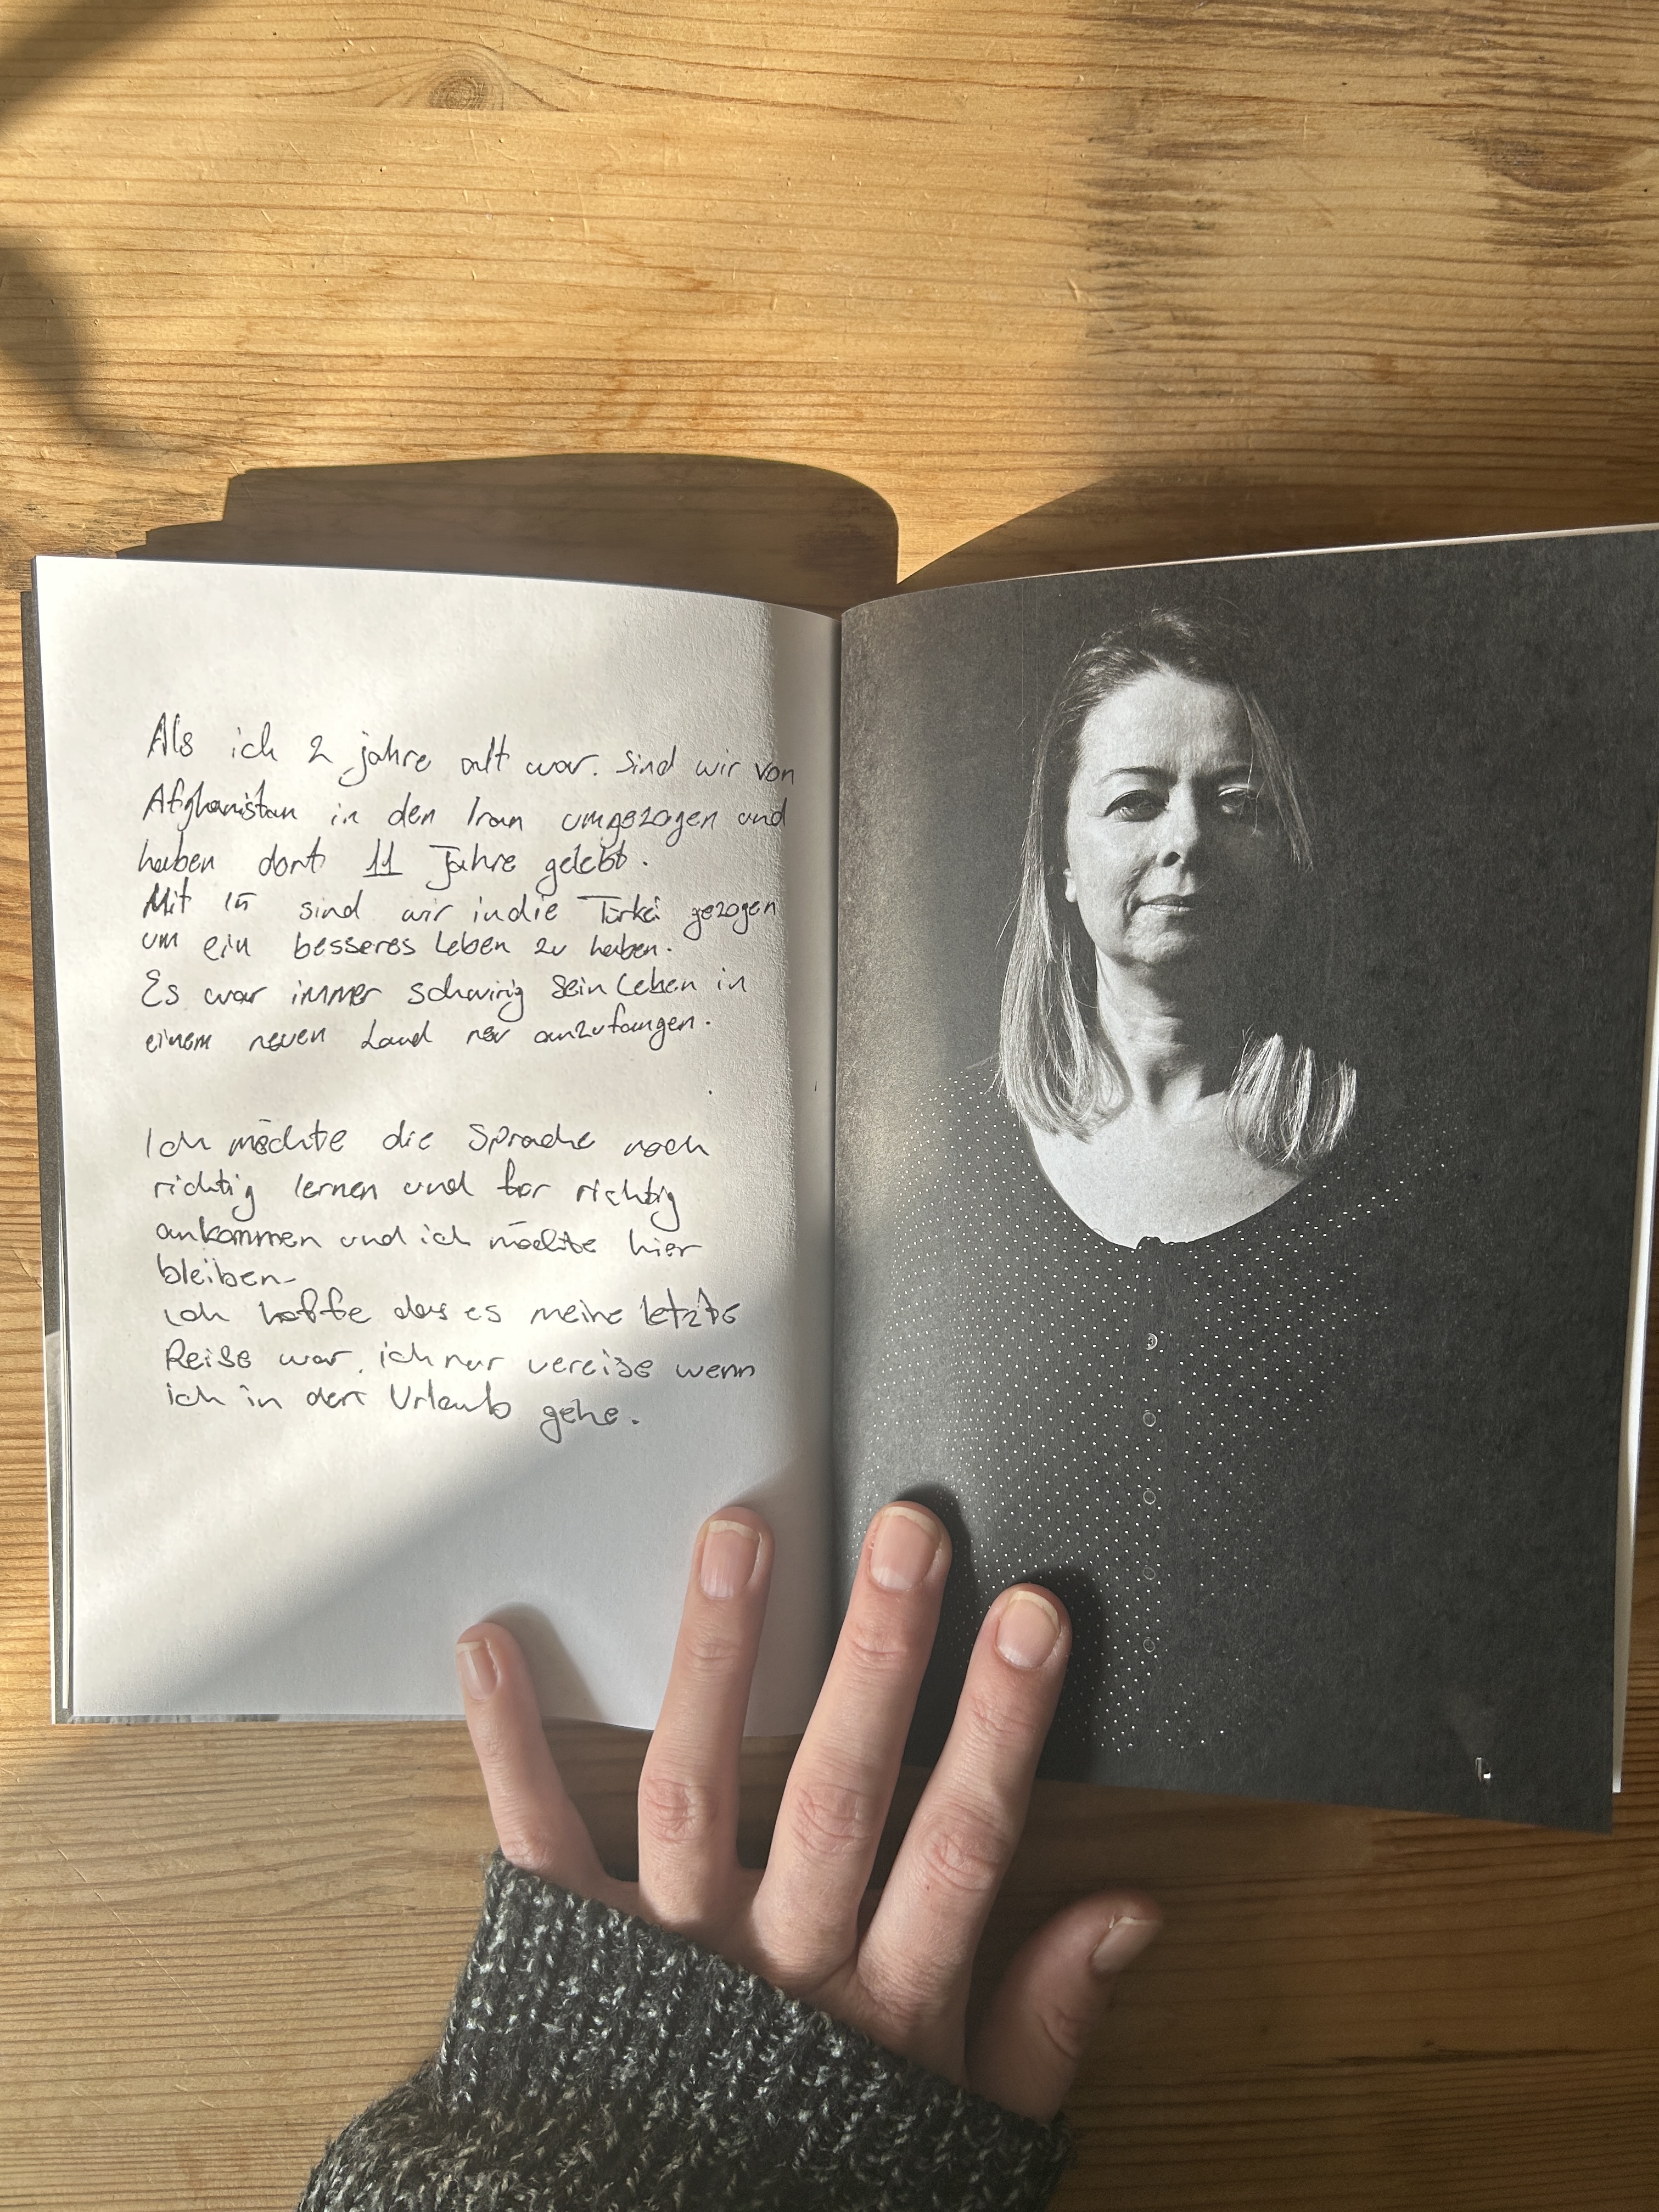 Als ich 2 jahre alt war. sind wir von
Afghanistan in den Iran umgezogen und
haben dort 11 Jahre gelebt.
Mit 15 sind wir in die Türkei gezogen
um ein besseres Leben zu haben.
Es war immer schwirig sein Leben in
einem neuen Land neu anzufangen.
Ich möchte die Sprache noch
richtig lernen und richtig
ankommen und ich möchte hier
bleiben
ich hoffe das es meine letzte
Reise war, ich nur vereise wenn
ich in den Urlaub gehe.